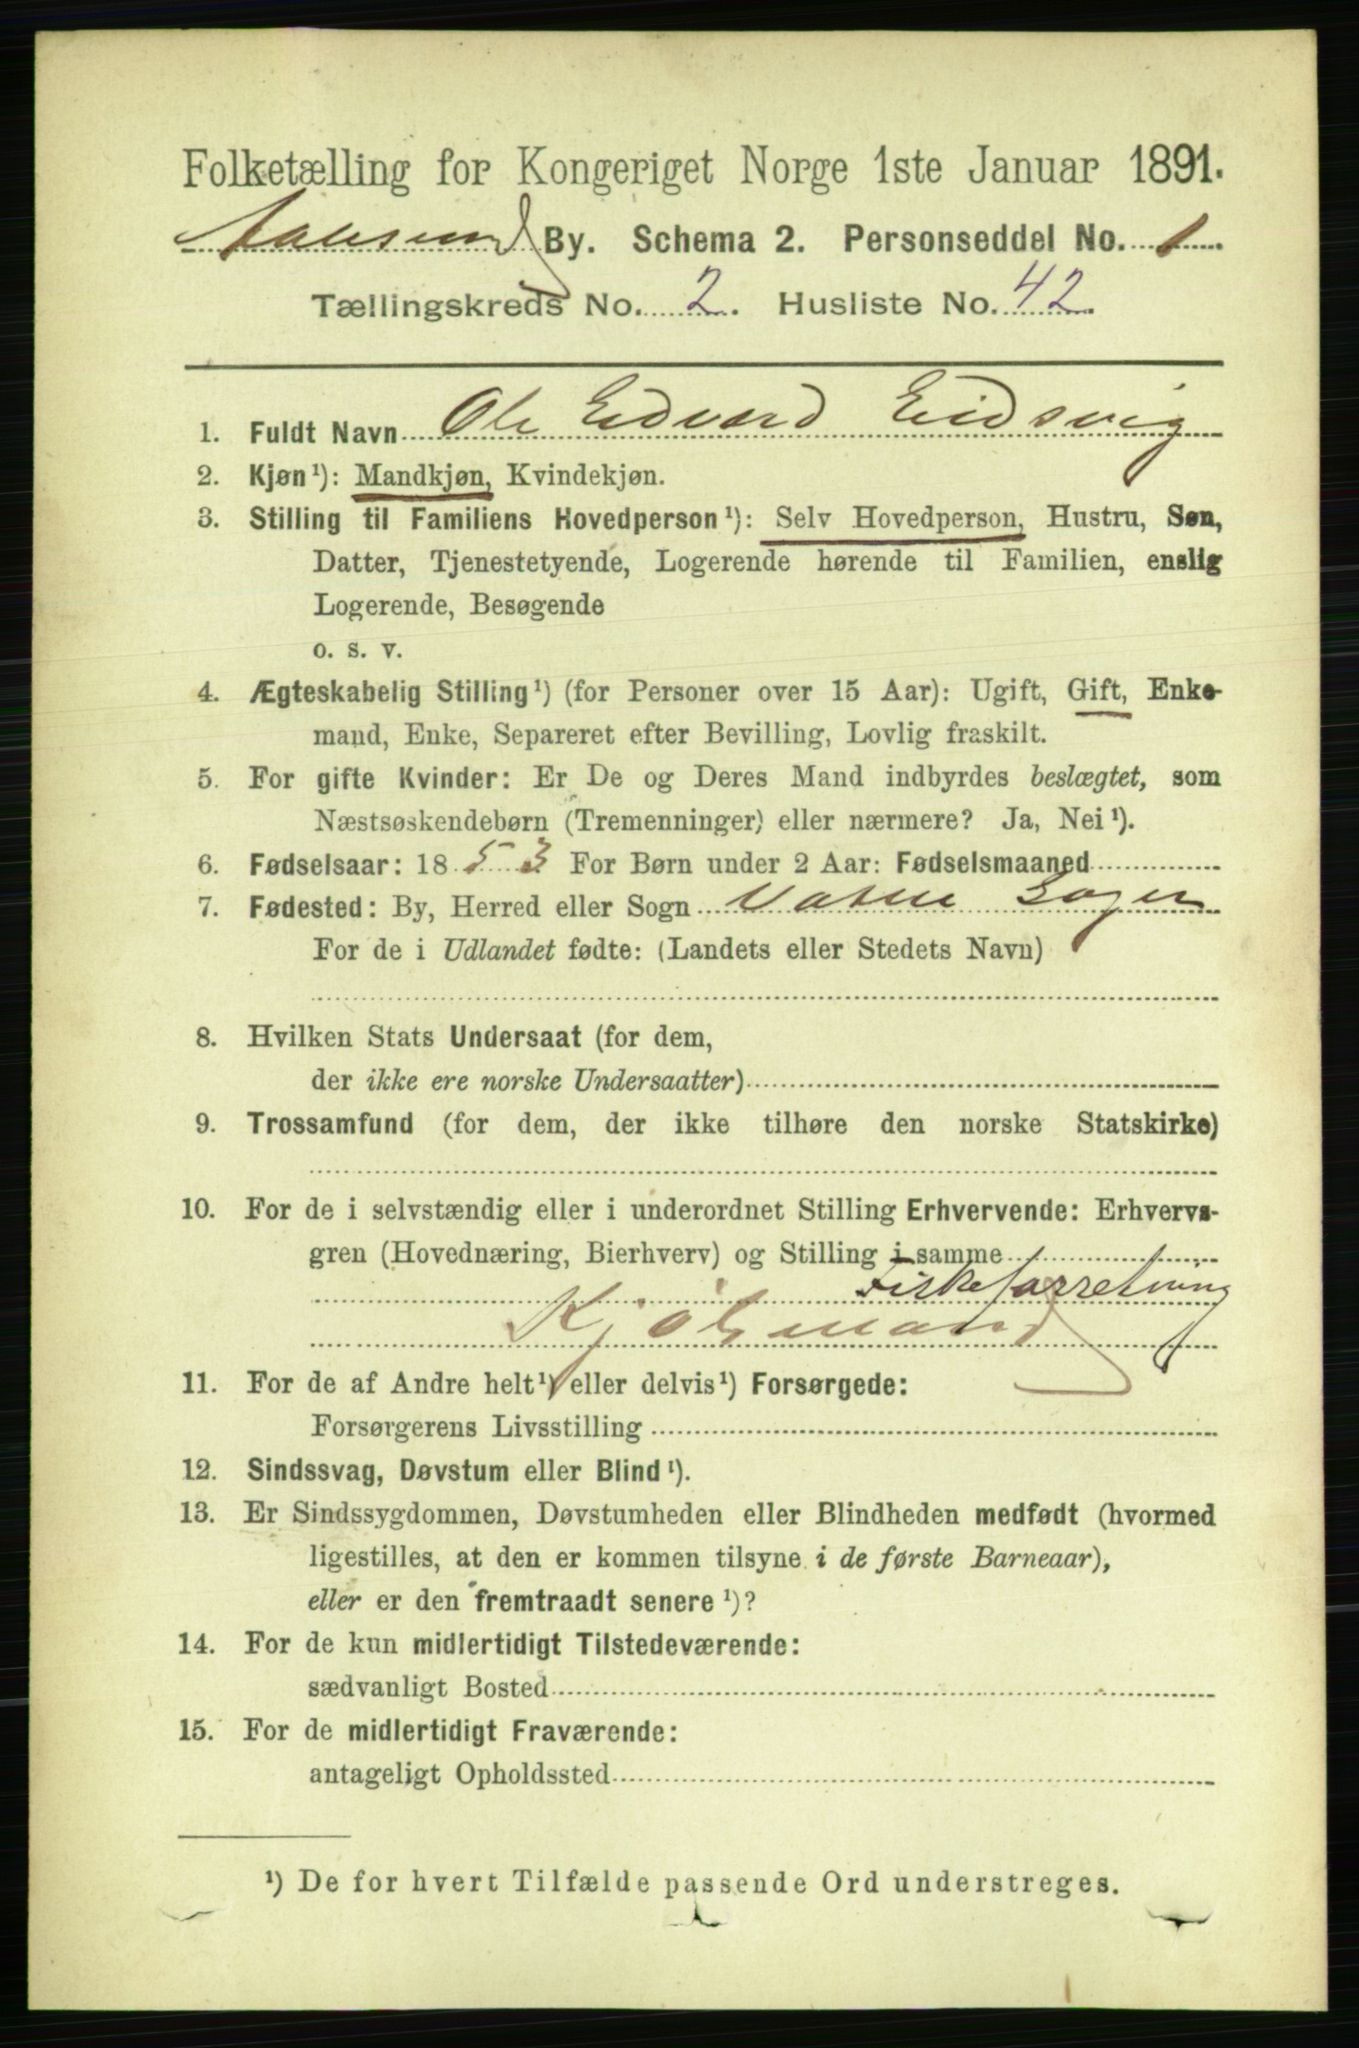 Folketælling for Kongeriget Norge 1ste Januar 1891.
Aalesund By. Schema 2. Personseddel No. 1.
Tællingskreds No. 2. Husliste No. 42.
1. Fuldt Navn Ole Edvard Eidsvig
2. Kjøn¹): Mandkjøn, Kvindekjøn.
3. Stilling til Familiens Hovedperson¹): Selv Hovedperson, Hustru, Søn,
Datter, Tjenestetyende, Logerende hørende til Familien, enslig
Logerende, Besøgende
o. s. v.
4. Ægteskabelig Stilling¹) (for Personer over 15 Aar): Ugift, Gift, Enke-
mand, Enke, Separeret efter Bevilling, Lovlig fraskilt.
5. For gifte Kvinder: Er De og Deres Mand indbyrdes beslægtet, som
Næstsøskendebørn (Tremenninger) eller nærmere? Ja, Nei¹).
6. Fødselsaar: 1853 For Børn under 2 Aar: Fødselsmaaned
7. Fødested: By, Herred eller Sogn Vatne Sogn
For de i Udlandet fødte: (Landets eller Stedets Navn)
8. Hvilken Stats Undersaat (for dem,
der ikke ere norske Undersaatter)
9. Trossamfund (for dem, der ikke tilhøre den norske Statskirke)
10. For de i selvstændig eller i underordnet Stilling Erhvervende: Erhvervs-
gren (Hovednæring, Bierhverv) og Stilling i samme
Fiskeforretning
Kjøbmand
11. For de af Andre helt¹) eller delvis¹) Forsørgede:
Forsørgerens Livsstilling
12. Sindssvag, Døvstum eller Blind¹).
13. Er Sindssygdommen, Døvstumheden eller Blindheden medfødt (hvormed
ligestilles, at den er kommen tilsyne i de første Barneaar),
eller er den fremtraadt senere¹)?
14. For de kun midlertidigt Tilstedeværende:
sædvanligt Bosted
15. For de midlertidigt Fraværende:
antageligt Opholdssted
¹) De for hvert Tilfælde passende Ord understreges.